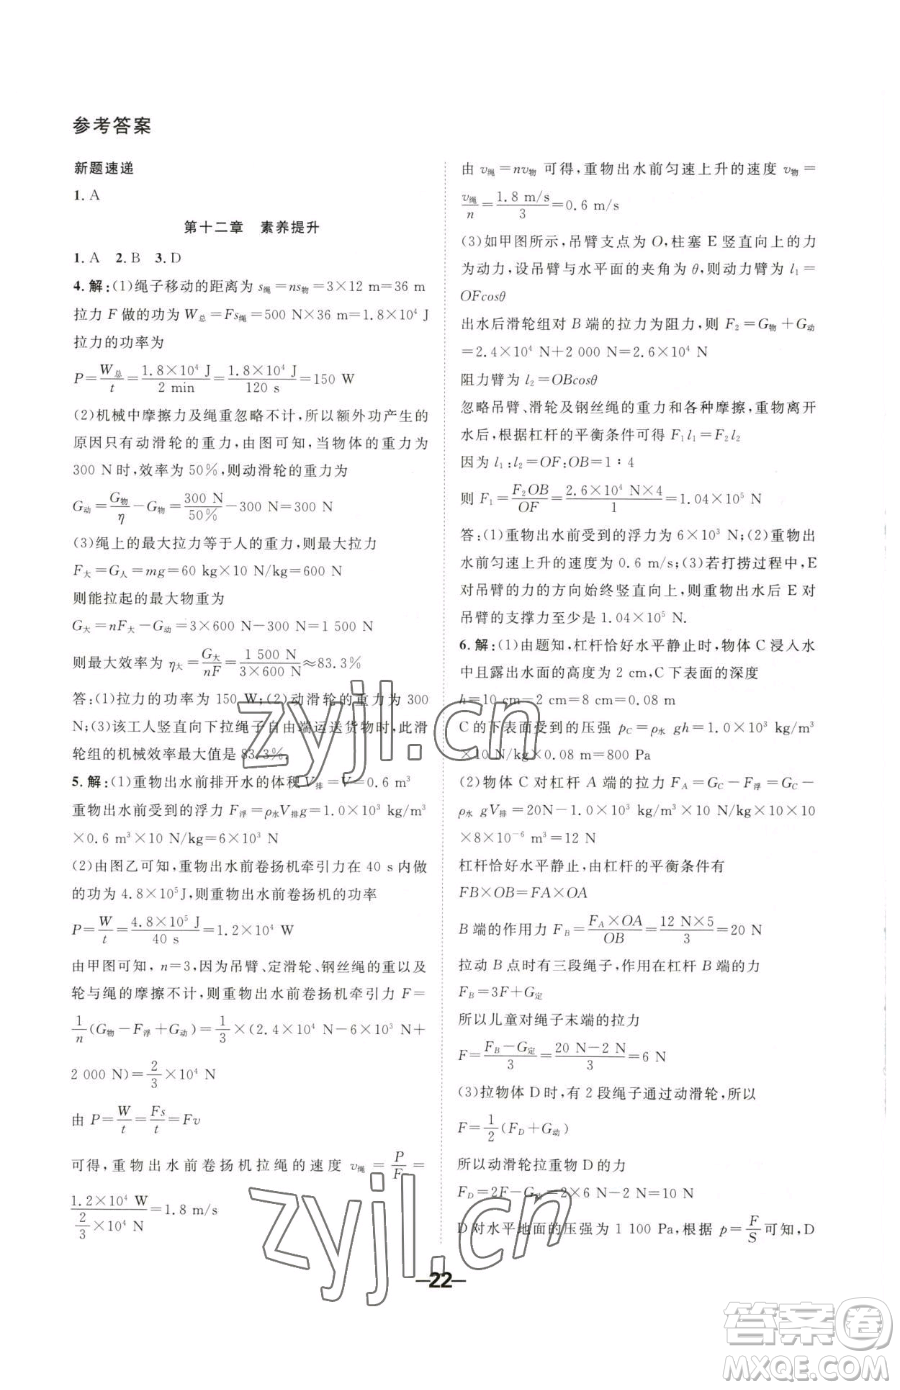 参考答案
新题速递
1. A
第十二章 素养提升
1. A 2. B 3. D
4. 解:(1)绳子移动的距离为 s绳=ns物=3×12 m=36 m
拉力 F 做的功为 W总=Fs绳=500 N×36 m=1.8×10⁴ J
拉力的功率为
P=W总/t=1.8×10⁴ J/2 min=1.8×10⁴ J/120 s=150 W
(2)机械中摩擦力及绳重忽略不计,所以额外功产生的
原因只有动滑轮的重力,由图可知,当物体的重力为
300 N时,效率为 50%,则动滑轮的重力为
G动=G物/η-G物=300 N/50%-300 N=300 N
(3)绳上的最大拉力等于人的重力,为
F大=G人=mg=60 kg×10 N/kg=600 N
则能拉起的最大物重为
G大=nF大-G动=3×600 N-300 N=1 500 N
则最大效率为 η大=G大/nF=1 500 N/3×600 N≈83.3%
答:(1)拉力的功率为 150 W;(2)动滑轮的重力为 300
N;(3)该工人竖直向下拉绳子自由端运送货物时,此滑
轮组的机械效率最大值是 83.3%.
5. 解:(1)重物出水前排开水的体积 V排=V=0.6 m³
重物出水前受到的浮力 F浮=ρ水V排g=1.0×10³ kg/m³
×0.6 m³×10 N/kg=6×10³ N
(2)由图乙可知,重物出水前卷扬机牵引力在 40 s内做
的功为 4.8×10⁵J,则重物出水前卷扬机的功率
P=W/t=4.8×10⁵J/40 s=1.2×10⁴ W
由甲图可知,n=3,因吊臂、定滑轮、钢丝绳的重以及
轮与绳的摩擦不计,则重物出水前卷扬机牵引力 F=
1/n(G物-F浮+G动)=1/3×(2.4×10⁴ N-6×10³ N+
2 000 N)=2/3×10⁴ N
由 P=W/t=Fs/t=Fv
可得,重物出水前卷扬机拉绳的速度 v绳=P/F=
1.2×10⁴ W/2/3×10⁴ N=1.8 m/s
由 v绳=nv物 可得,重物出水前匀速上升的速度 v物=
v绳/n=1.8 m/s/3=0.6 m/s
(3)如甲图所示,吊臂支点为 O,柱塞 E 竖直向上的力
为动力,设吊臂与水平面的夹角为θ,则动力臂 l₁=
OFcosθ
出水后滑轮组对 B 端的拉力为阻力,则 F₂=G物+G动
=2.4×10⁴ N+2 000 N=2.6×10⁴ N
阻力臂 l₂=OBcosθ
忽略吊臂、滑轮及钢丝绳的重力和各种摩擦,重物离开
水后,根据杠杆的平衡条件可得 F₁l₁=F₂l₂
因为 l₁:l₂=OF:OB=1:4
则 F₁=F₂OB/OF=2.6×10⁴ N×4/1=1.04×10⁵ N
答:(1)重物出水前受到的浮力为 6×10³ N;(2)重物出
水前匀速上升的速度为 0.6 m/s;(3)若打捞过程中,E
对吊臂的力的方向始终竖直向上,则重物出水后 E 对
吊臂的支撑力至少是 1.04×10⁵ N.
6. 解:(1)由题知,杠杆恰好水平静止时,物体 C 浸入水
中且露出水面的高度为 2 cm,则 C 下表面的深度
h=10 cm-2 cm=8 cm=0.08 m
C 的下表面受到的压强 pC=ρ水 gh=1.0×10³ kg/m³
×10 N/kg×0.08 m=800 Pa
(2)物体 C 对杠杆 A 端的拉力 FA=GC-F浮=GC-
ρ水 gV排=20N-1.0×10³ kg/m³×10 N/kg×10×10
×8×10⁻⁶ m³=12 N
杠杆恰好水平静止,由杠杆的平衡条件有
FB×OB=FA×OA
B 端的作用力 FB=FA×OA/OB=12 N×5/3=20 N
拉动 B 点时有三段绳子,作用在杠杆 B 端的力
FB=3F+G定
所以儿童对绳子末端的拉力
F=FB-G定/3=20 N-2 N/3=6 N
(3)拉物体 D 时,有 2 段绳子通过动滑轮,所以
F=1/2(FD+G动)
所以动滑轮拉重物 D 的力
FD=2F-G动=2×6 N-2 N=10 N
D 对水平地面的压强为 1 100 Pa,根据 p=F/S可知,D
22
zyjl.cn
zyjl.cn
答案圈
MXQE.COM